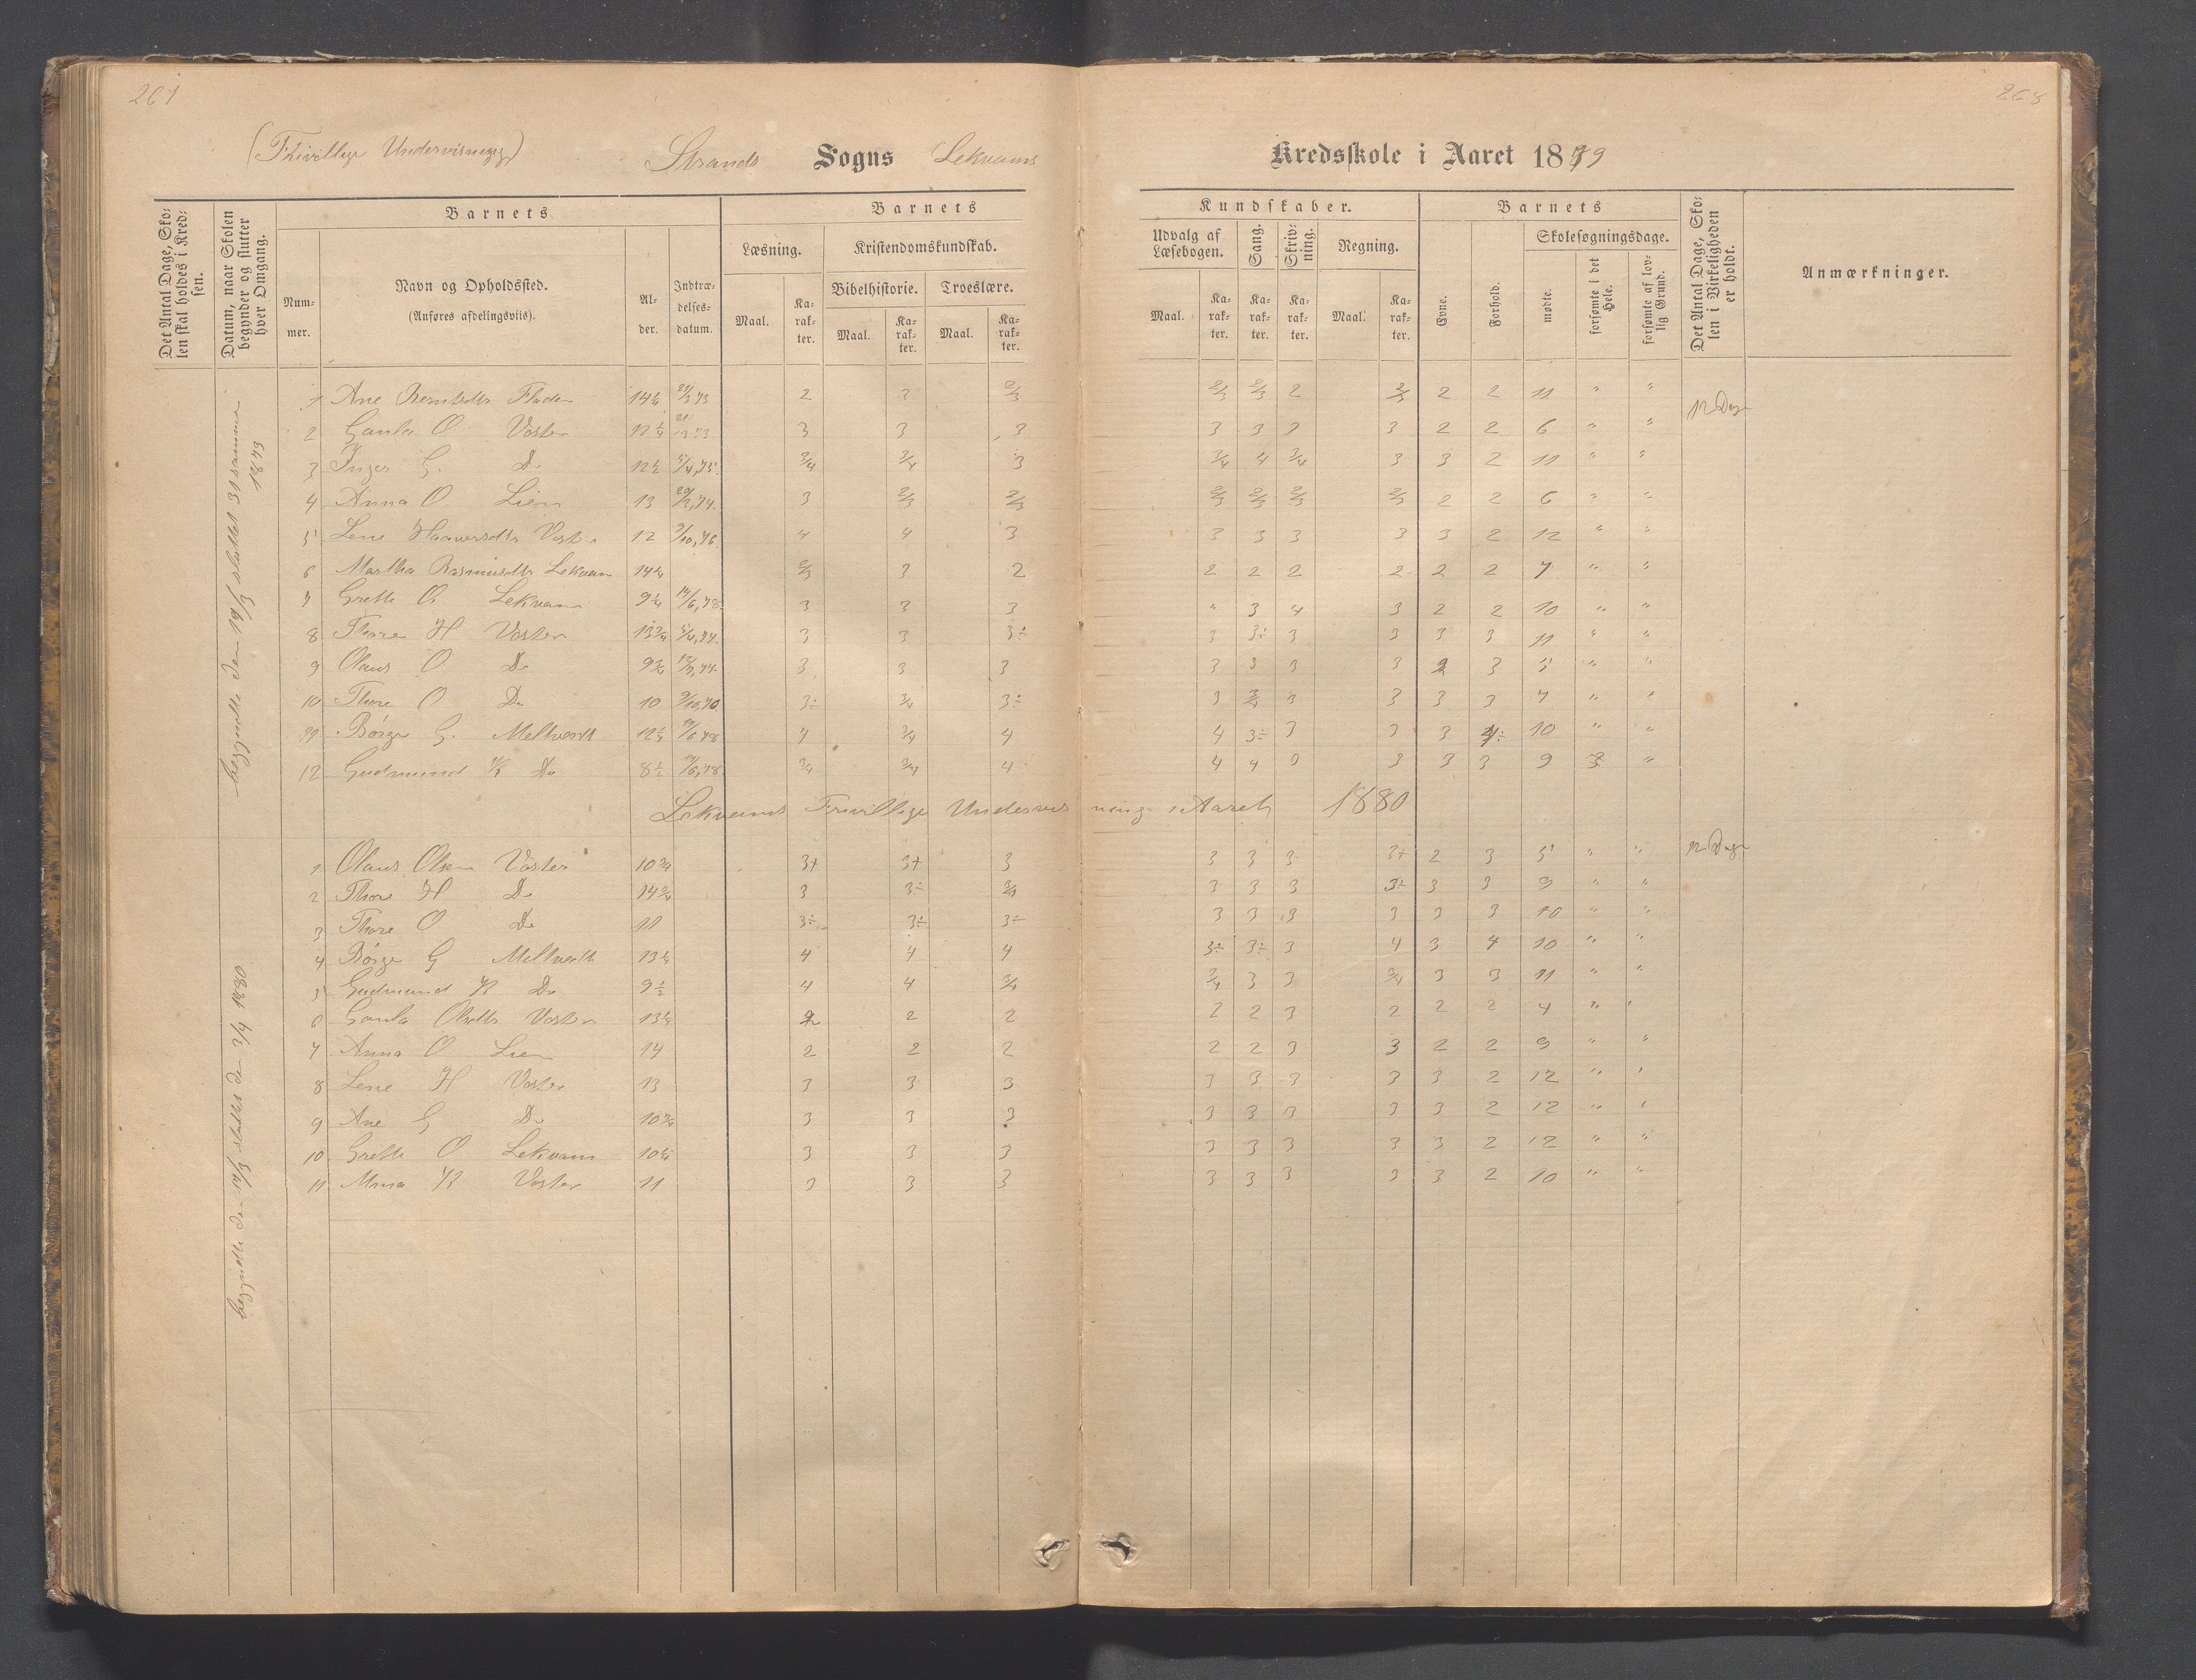 261
268
(Frivillige Undervisning)
Strands Sogns Lekvams Kredsskole i Aaret 1879
Det Antal Dage, Skolen skal holdes i Kredsen.
Datum, naar Skolen begynder og slutter hver Omgang.
Barnets
Nummer.
Navn og Opholdssted.
(Anføres afdelingsviis).
Alder.
Indtrædelses-datum.
Barnets Kundskaber.
Læsning.
Kristendomskundskab.
Bibelhistorie. Troeslære.
Maal. Karakter. Maal. Karakter. Maal. Karakter.
Udvalg af Læsebogen. Sang. Skrivning. Regning.
Maal. Karakter. Karakter. Karakter. Maal. Karakter.
Barnets
Evne. Forhold.
Skolesøgningsdage.
mødte. forsømte i det Hele. forsømte af lovlig Grund.
Det Antal Dage, Skolen i Virkeligheden er holdt.
Anmærkninger.
begyndte den 19/3 sluttet 31 samme 1879
1 Ane Berntsdtr Fladen 14¼ 2 3 2/3 2/3 2/3 2 2/3 2 2 11 " " 12 Dage
2 O Voster 12¼ 3 3 3 3 3 3 3 2 2 6 " "
3 Inger G. Do 12½ 5/4,75. 3/4 3/4 3 3/4 4 3/4 3 3 2 11 " "
4 Anna O Lien 13 3 2/3 2/3 2/3 2/3 2/3 2/3 2 2 6 " "
5 Lene Haaversdtr Voster 12 9/10,76 4 4 3 3 3 3 3 3 2 12 " "
6 Martha Rasmusdtr Lekvam 14¼ 2/3 3 2 2 2 2 2 2 2 7 " "
7 Grethe O. Lekvam 9¼ 14/6,78 3 3 3 " 3 4 3 2 2 10 " "
8 Thore H Voster 13¾ 5/4,74. 3 3 3÷ 3 3÷ 3 3 3 3 11 " "
9 Olaus O Do 9¾ 3 3 3 3 3 3 3 2 3 5 " "
10 Thore O Do 10 3÷ 3/4 3÷ 3 3/4 3 3 3 3 7 " "
11 Børge G. Meltveidt 12¼ 14/6 78 4 3/4 4 4 3÷ 3 3 3 10 " "
12 Gudmund K Do 8½ 14/6,78 3/4 3/4 4 4 4 3 3 3 3 9 3 "
Lekvams Frivillige Undervisning i Aaret 1880
begyndte den 14/3 sluttet den 2/4 1880
1 Olaus Olsen Voster 10¾ 3+ 3+ 3 3 3 3 3+ 2 3 5 " " 12 Dage
2 Thore H Do 14¾ 3 3÷ 3/4 3 3 3 3÷ 3 3 9 " "
3 Thore O Do 11 3÷ 3÷ 3÷ 3 3 3 3 3 3 10 " "
4 Børge G Meltveidt 13¼ 4 4 4 3÷ 3÷ 3 4 3 4 10 " "
5 Gudmund K Do 9½ 4 4 3/4 3/4 3 3 3/4 3 3 11 " "
6 Olsdtr Voster 13¼ 2 2 2 2 2 3 2 2 2 4 " "
7 Anna O Lien 14 2 2 2 2 2 3 3 2 2 9 " "
8 Lene H Voster 13 3 3 3 3 3 3 3 3 2 12 " "
9 Ane G Do 10¾ 3 3 3 3 3 3 3 3 2 12 " "
10 Grethe O Lekvam 10¼ 3 3 3 3 3 3 3 3 2 12 " "
11 K Voster 11 3 3 3 3 3 3 3 3 2 10 " "